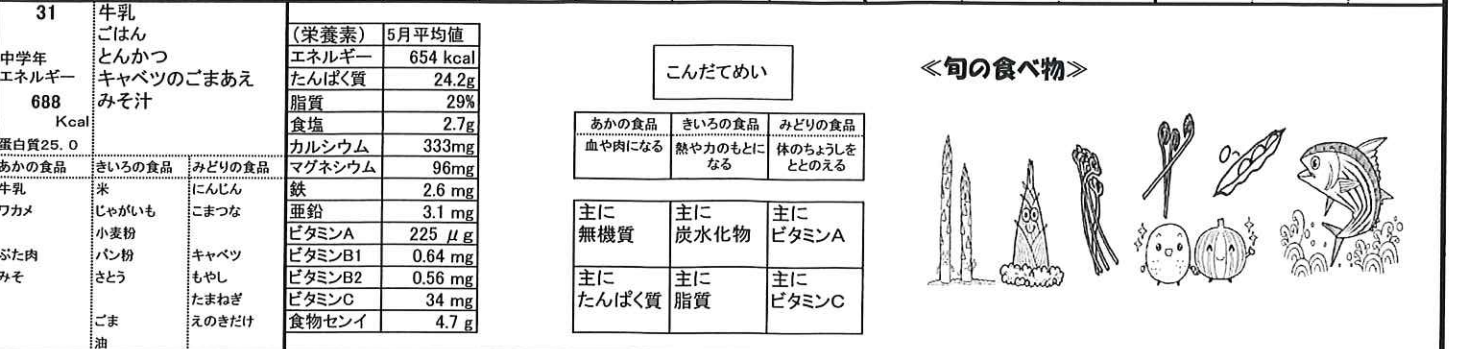 31
牛乳
ごはん
とんかつ
キャベツのごまあえ
みそ汁
中学年
エネルギー
688
Kcal
蛋白質25.0
あかの食品 きいろの食品 みどりの食品
牛乳 米 にんじん
ワカメ じゃがいも こまつな
小麦粉
ぶた肉 パン粉 キャベツ
みそ さとう もやし
たまねぎ
ごま えのきだけ
油
(栄養素) 5月平均値
エネルギー 654 kcal
たんぱく質 24.2g
脂質 29%
食塩 2.7g
カルシウム 333mg
マグネシウム 96mg
鉄 2.6 mg
亜鉛 3.1 mg
ビタミンA 225 μg
ビタミンB1 0.64 mg
ビタミンB2 0.56 mg
ビタミンC 34 mg
食物センイ 4.7 g
こんだてめい
あかの食品 きいろの食品 みどりの食品
血や肉になる 熱や力のもとに 体のちょうしを
なる ととのえる
主に 主に 主に
無機質 炭水化物 ビタミンA
主に 主に 主に
たんぱく質 脂質 ビタミンC
≪旬の食べ物≫